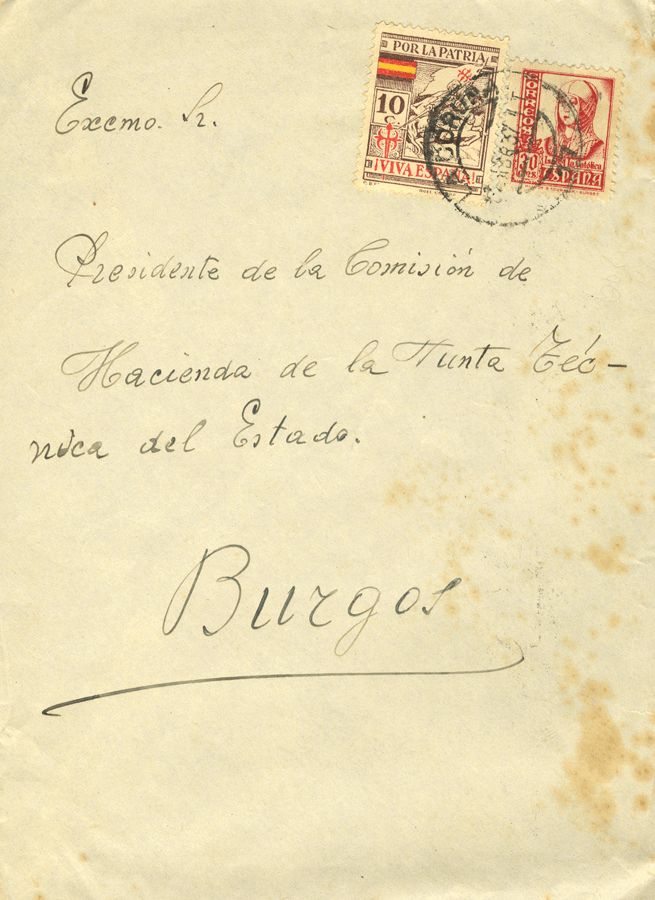 POR LA PATRIA
10
C
¡VIVA ESPAÑA!
CORREOS
30
ESPAÑA
CORUÑA
Excmo. Sr.
Presidente de la Comisión de
Hacienda de la Junta Téc-
nica del Estado.
Burgos